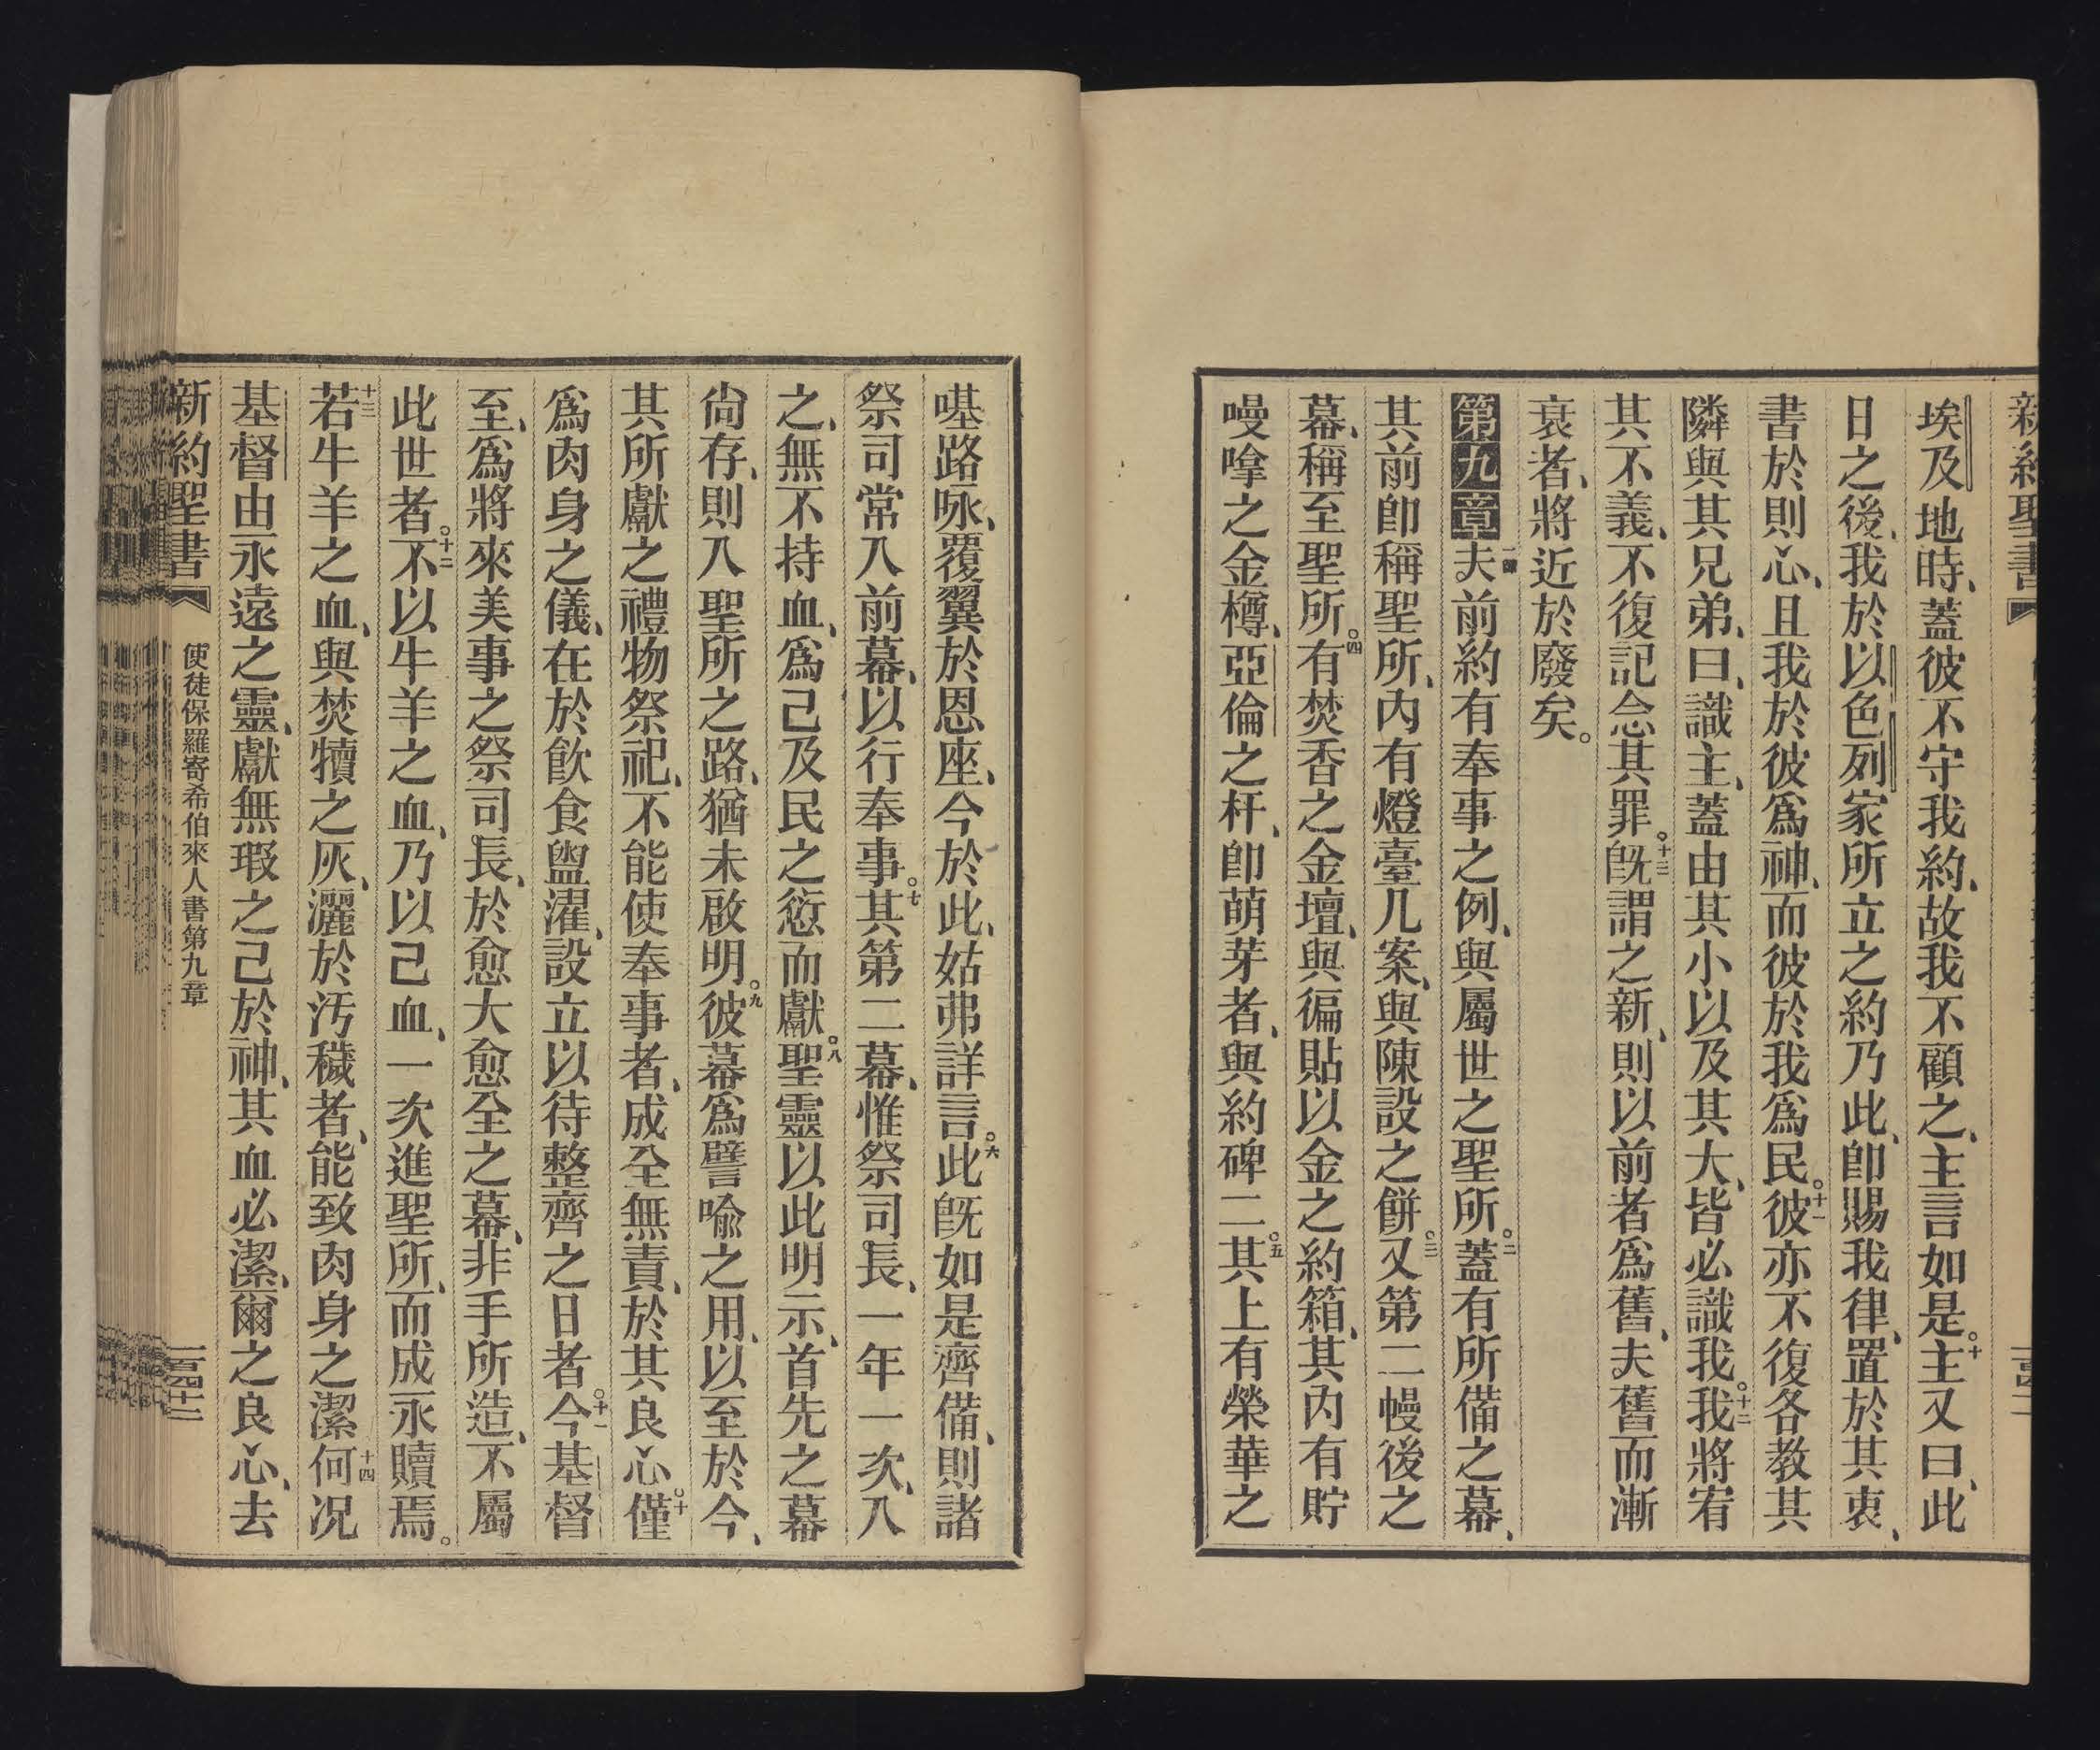 新約聖書
埃及地時、蓋彼不守我約、故我不顧之、主言如是。十主又曰、此
日之後、我於以色列家所立之約乃此、卽賜我律、置於其衷、
書於則心、且我於彼爲神、而彼於我爲民。十一彼亦不復各教其
隣與其兄弟、曰、識主、蓋由其小以及其大、皆必識我。十二我將宥
其不義、不復記念其罪。十三旣謂之新、則以前者爲舊、夫舊而漸
衰者、將近於廢矣。
第九章一夫前約有奉事之例、與屬世之聖所。二蓋有所備之幕、
其前卽稱聖所、內有燈臺几案、與陳設之餅。三又第二幔後之
幕、稱至聖所。四有焚香之金壇、與徧貼以金之約箱、其內有貯
嗎嗱之金樽、亞倫之杆、卽萌芽者、與約碑二。五其上有榮華之
𠼻路𠵽、覆翼於恩座、今於此、姑弗詳言。六此旣如是齊備、則諸
祭司常入前幕、以行奉事。七其第二幕、惟祭司長、一年一次、入
之、無不持血、爲己及民之愆而獻。八聖靈以此明示、首先之幕
尙存、則入聖所之路、猶未啟明。九彼幕爲譬喻之用、以至於今、
其所獻之禮物祭祀、不能使奉事者、成全無責、於其良心。十僅
爲肉身之儀、在於飮食盥濯、設立以待整齊之日者。十一今基督
至、爲將來美事之祭司長、於愈大愈全之幕、非手所造、不屬
此世者。十二不以牛羊之血、乃以己血、一次進聖所、而成永贖焉。
十三若牛羊之血、與焚犢之灰、灑於汚穢者、能致肉身之潔、十四何况
基督由永遠之靈、獻無瑕之己於神、其血必潔爾之良心、去
新約聖書 使徒保羅寄希伯來人書第九章 一百四十二